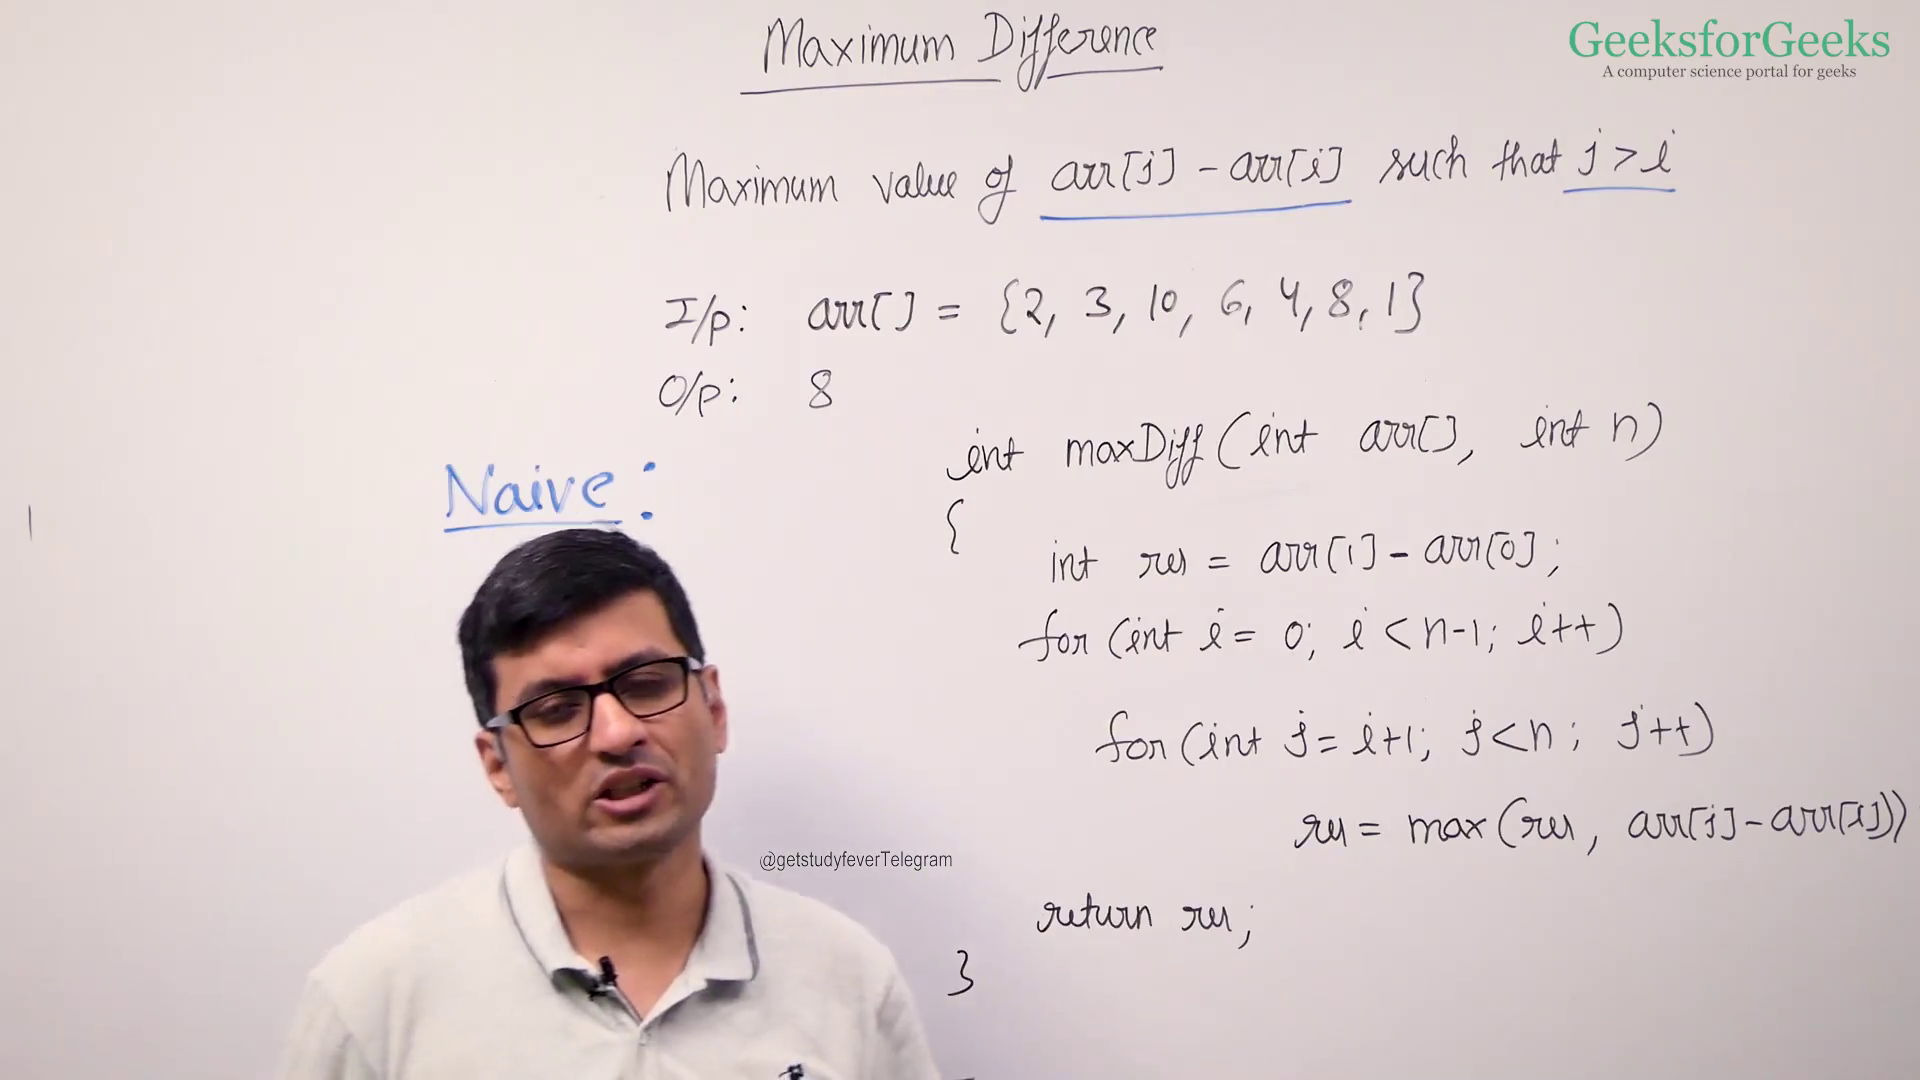 Maximum Difference
GeeksforGeeks
A computer science portal for geeks
Maximum value of arr[j] - arr[i] such that j > i
I/p: arr[] = {2, 3, 10, 6, 4, 8, 1}
O/p: 8
Naive:
int maxDiff(int arr[], int n)
{
int res = arr[1] - arr[0];
for (int i = 0; i < n-1; i++)
for (int j = i+1; j < n; j++)
res = max(res, arr[j] - arr[i])
@getstudyfeverTelegram
return res;
}